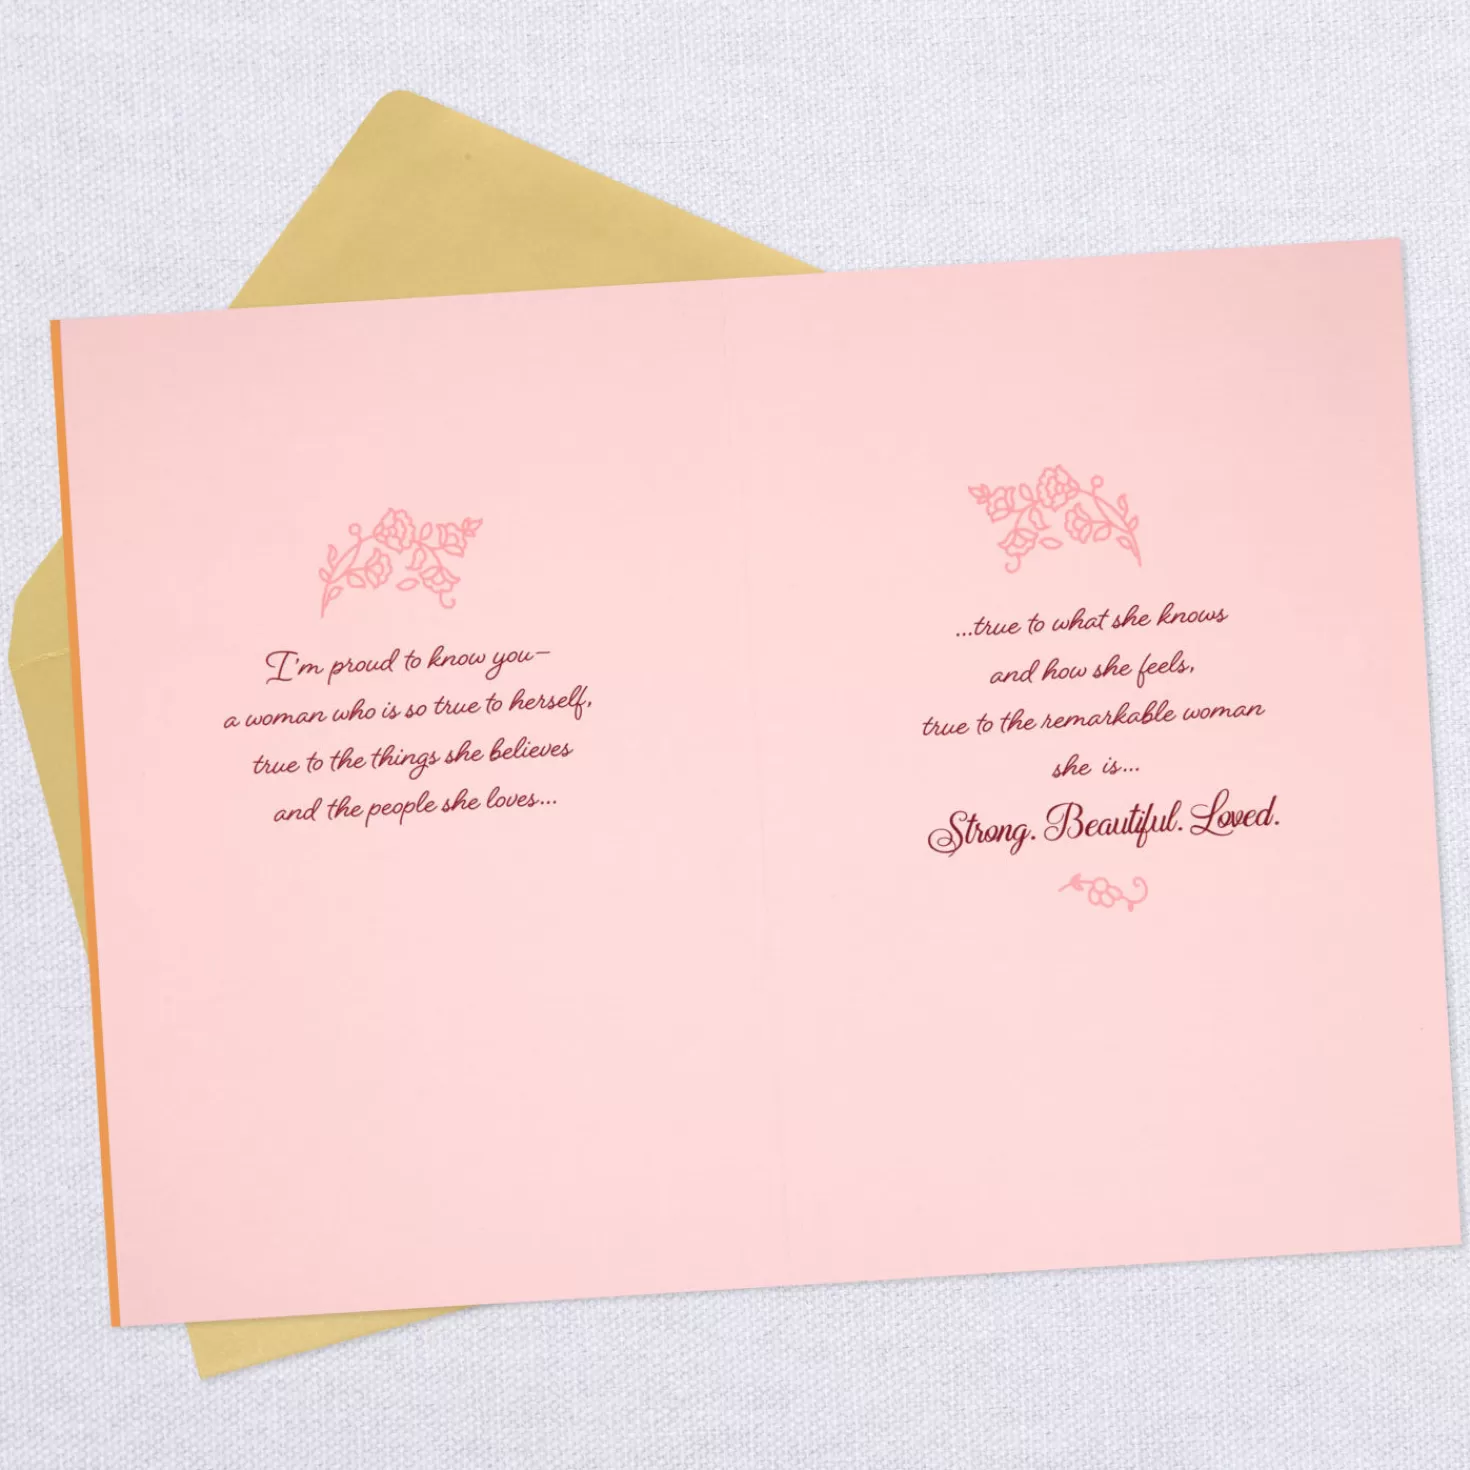 I'm proud to know you—
a woman who is so true to herself,
true to the things she believes
and the people she loves...
...true to what she knows
and how she feels,
true to the remarkable woman
she is...
Strong. Beautiful. Loved.